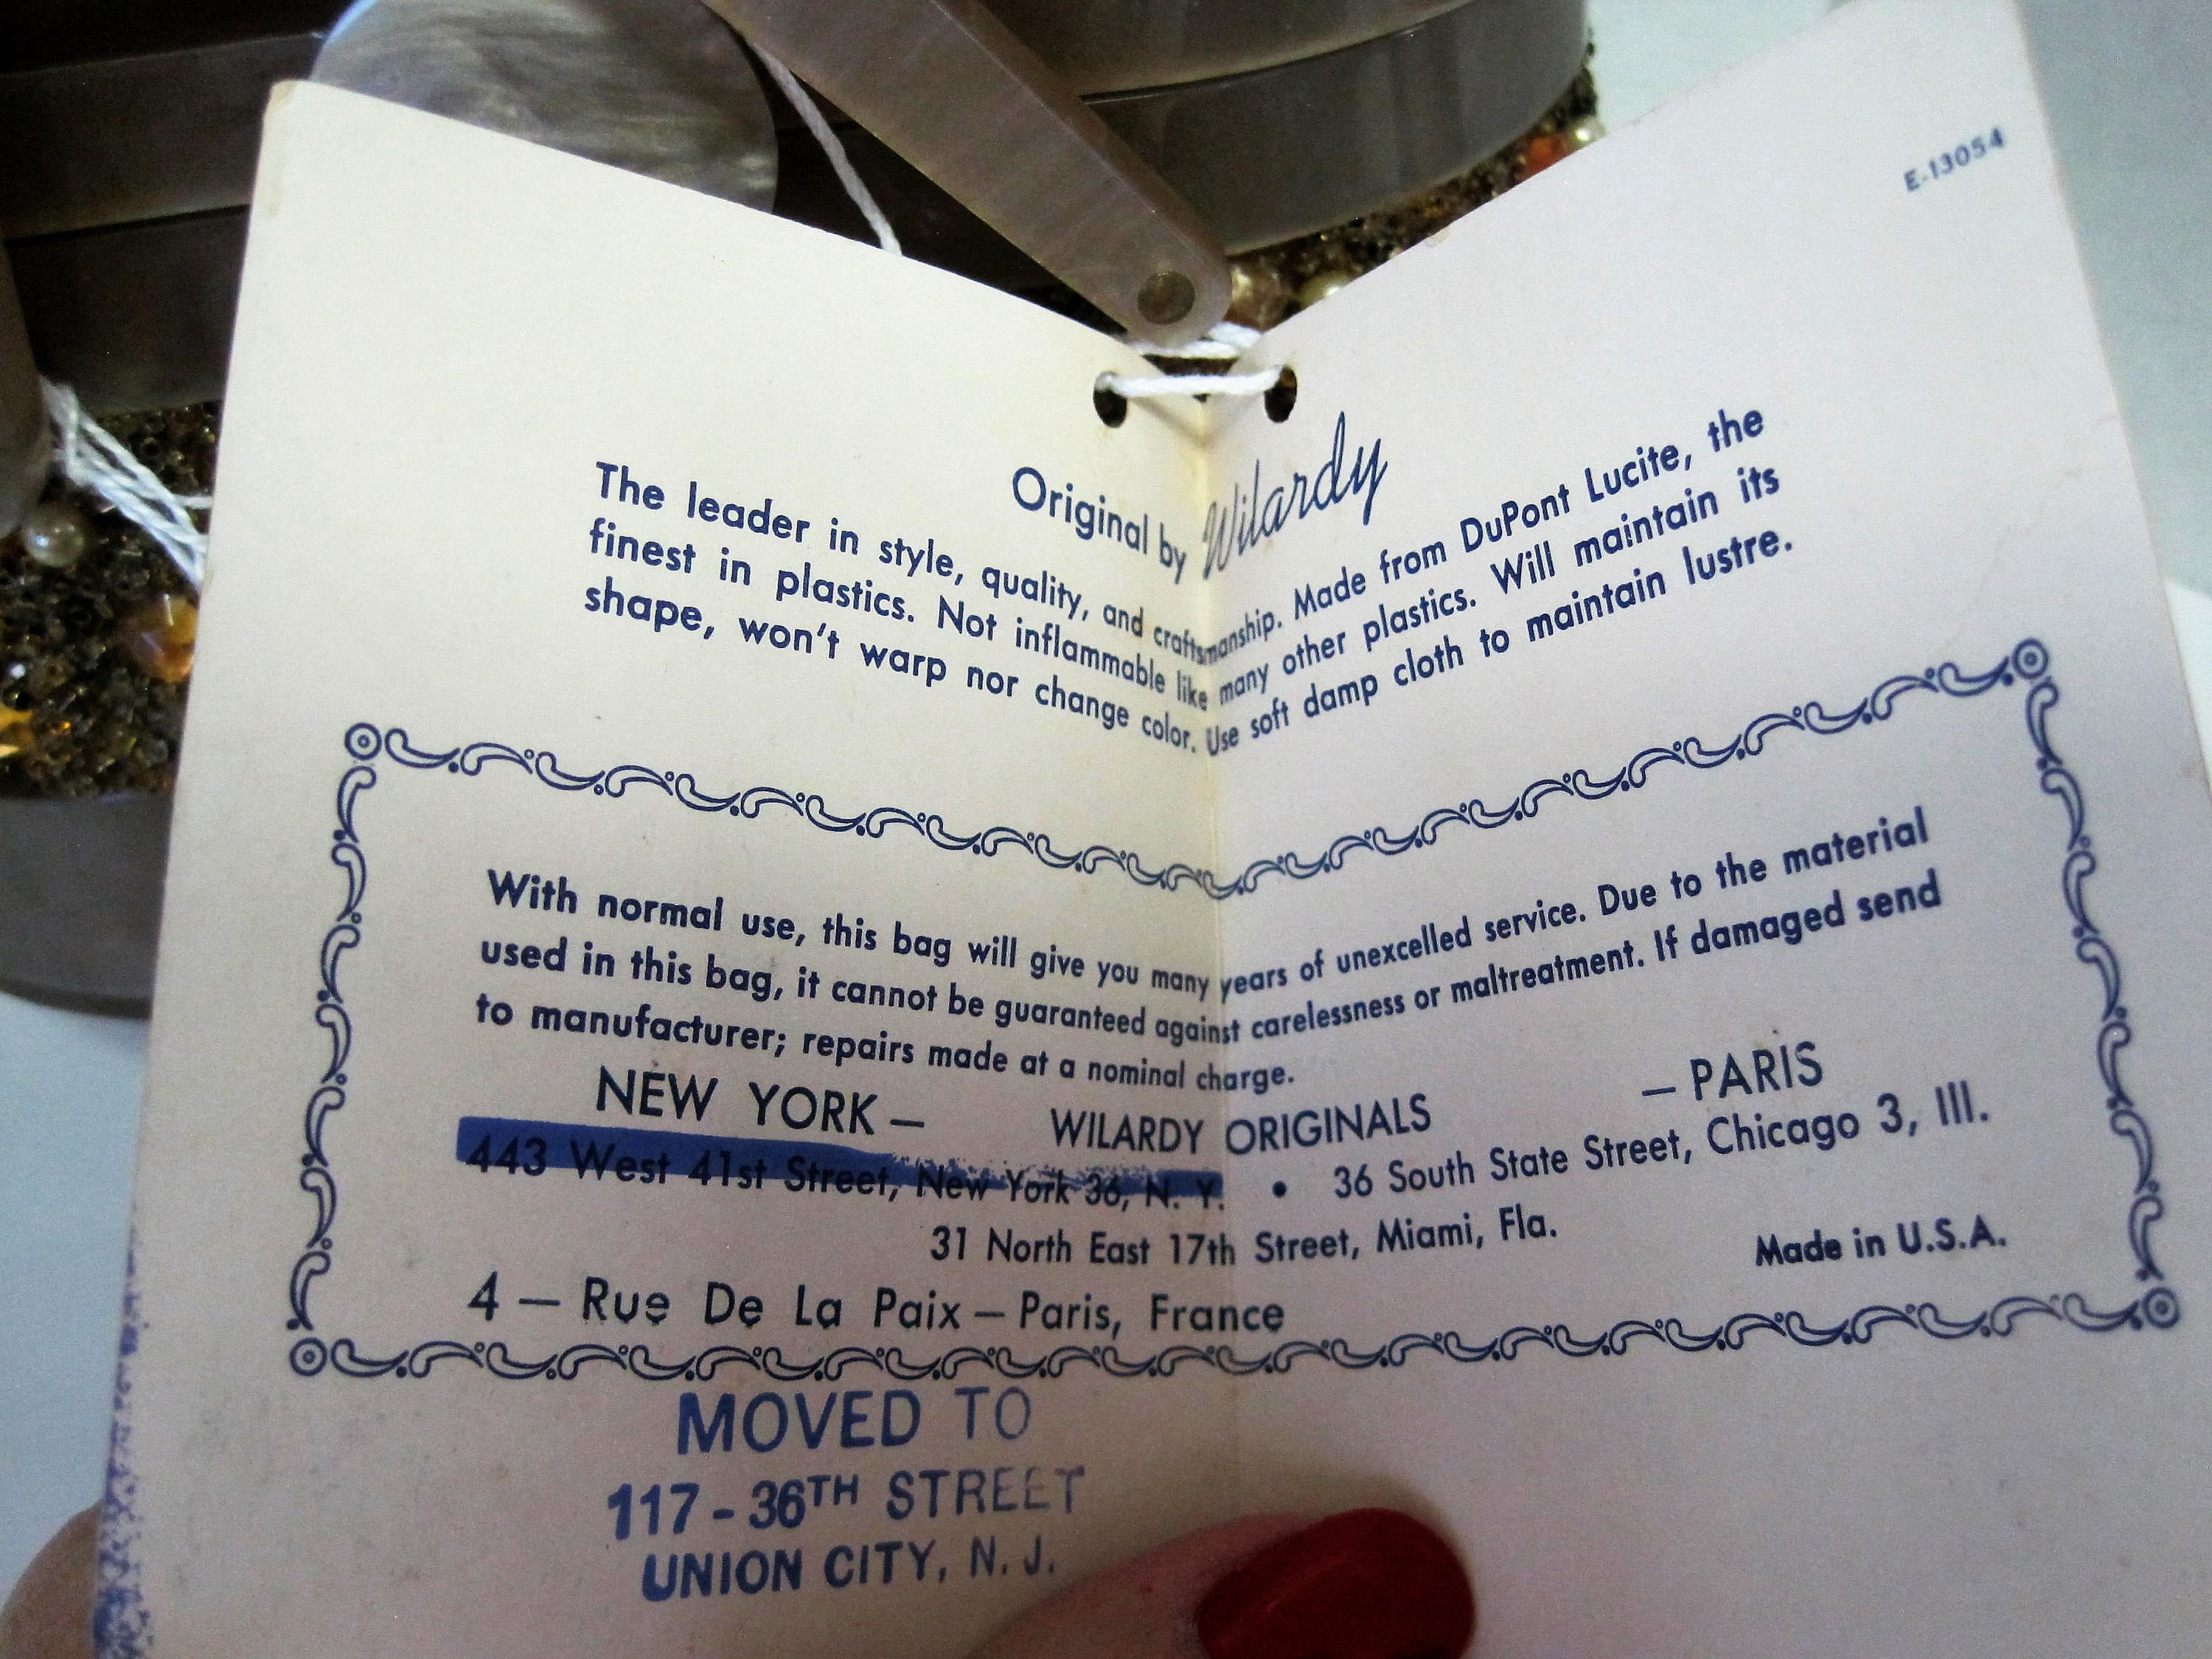 E-13054
Original by Wilardy
The leader in style, quality, and craftsmanship. Made from DuPont Lucite, the
finest in plastics. Not inflammable like many other plastics. Will maintain its
shape, won't warp nor change color. Use soft damp cloth to maintain lustre.
With normal use, this bag will give you many years of unexcelled service. Due to the material
used in this bag, it cannot be guaranteed against carelessness or maltreatment. If damaged send
to manufacturer; repairs made at a nominal charge.
NEW YORK — WILARDY ORIGINALS — PARIS
443 West 41st Street, New York 36, N. Y. • 36 South State Street, Chicago 3, Ill.
31 North East 17th Street, Miami, Fla. Made in U.S.A.
4 — Rue De La Paix — Paris, France
MOVED TO
117 - 36TH STREET
UNION CITY, N. J.